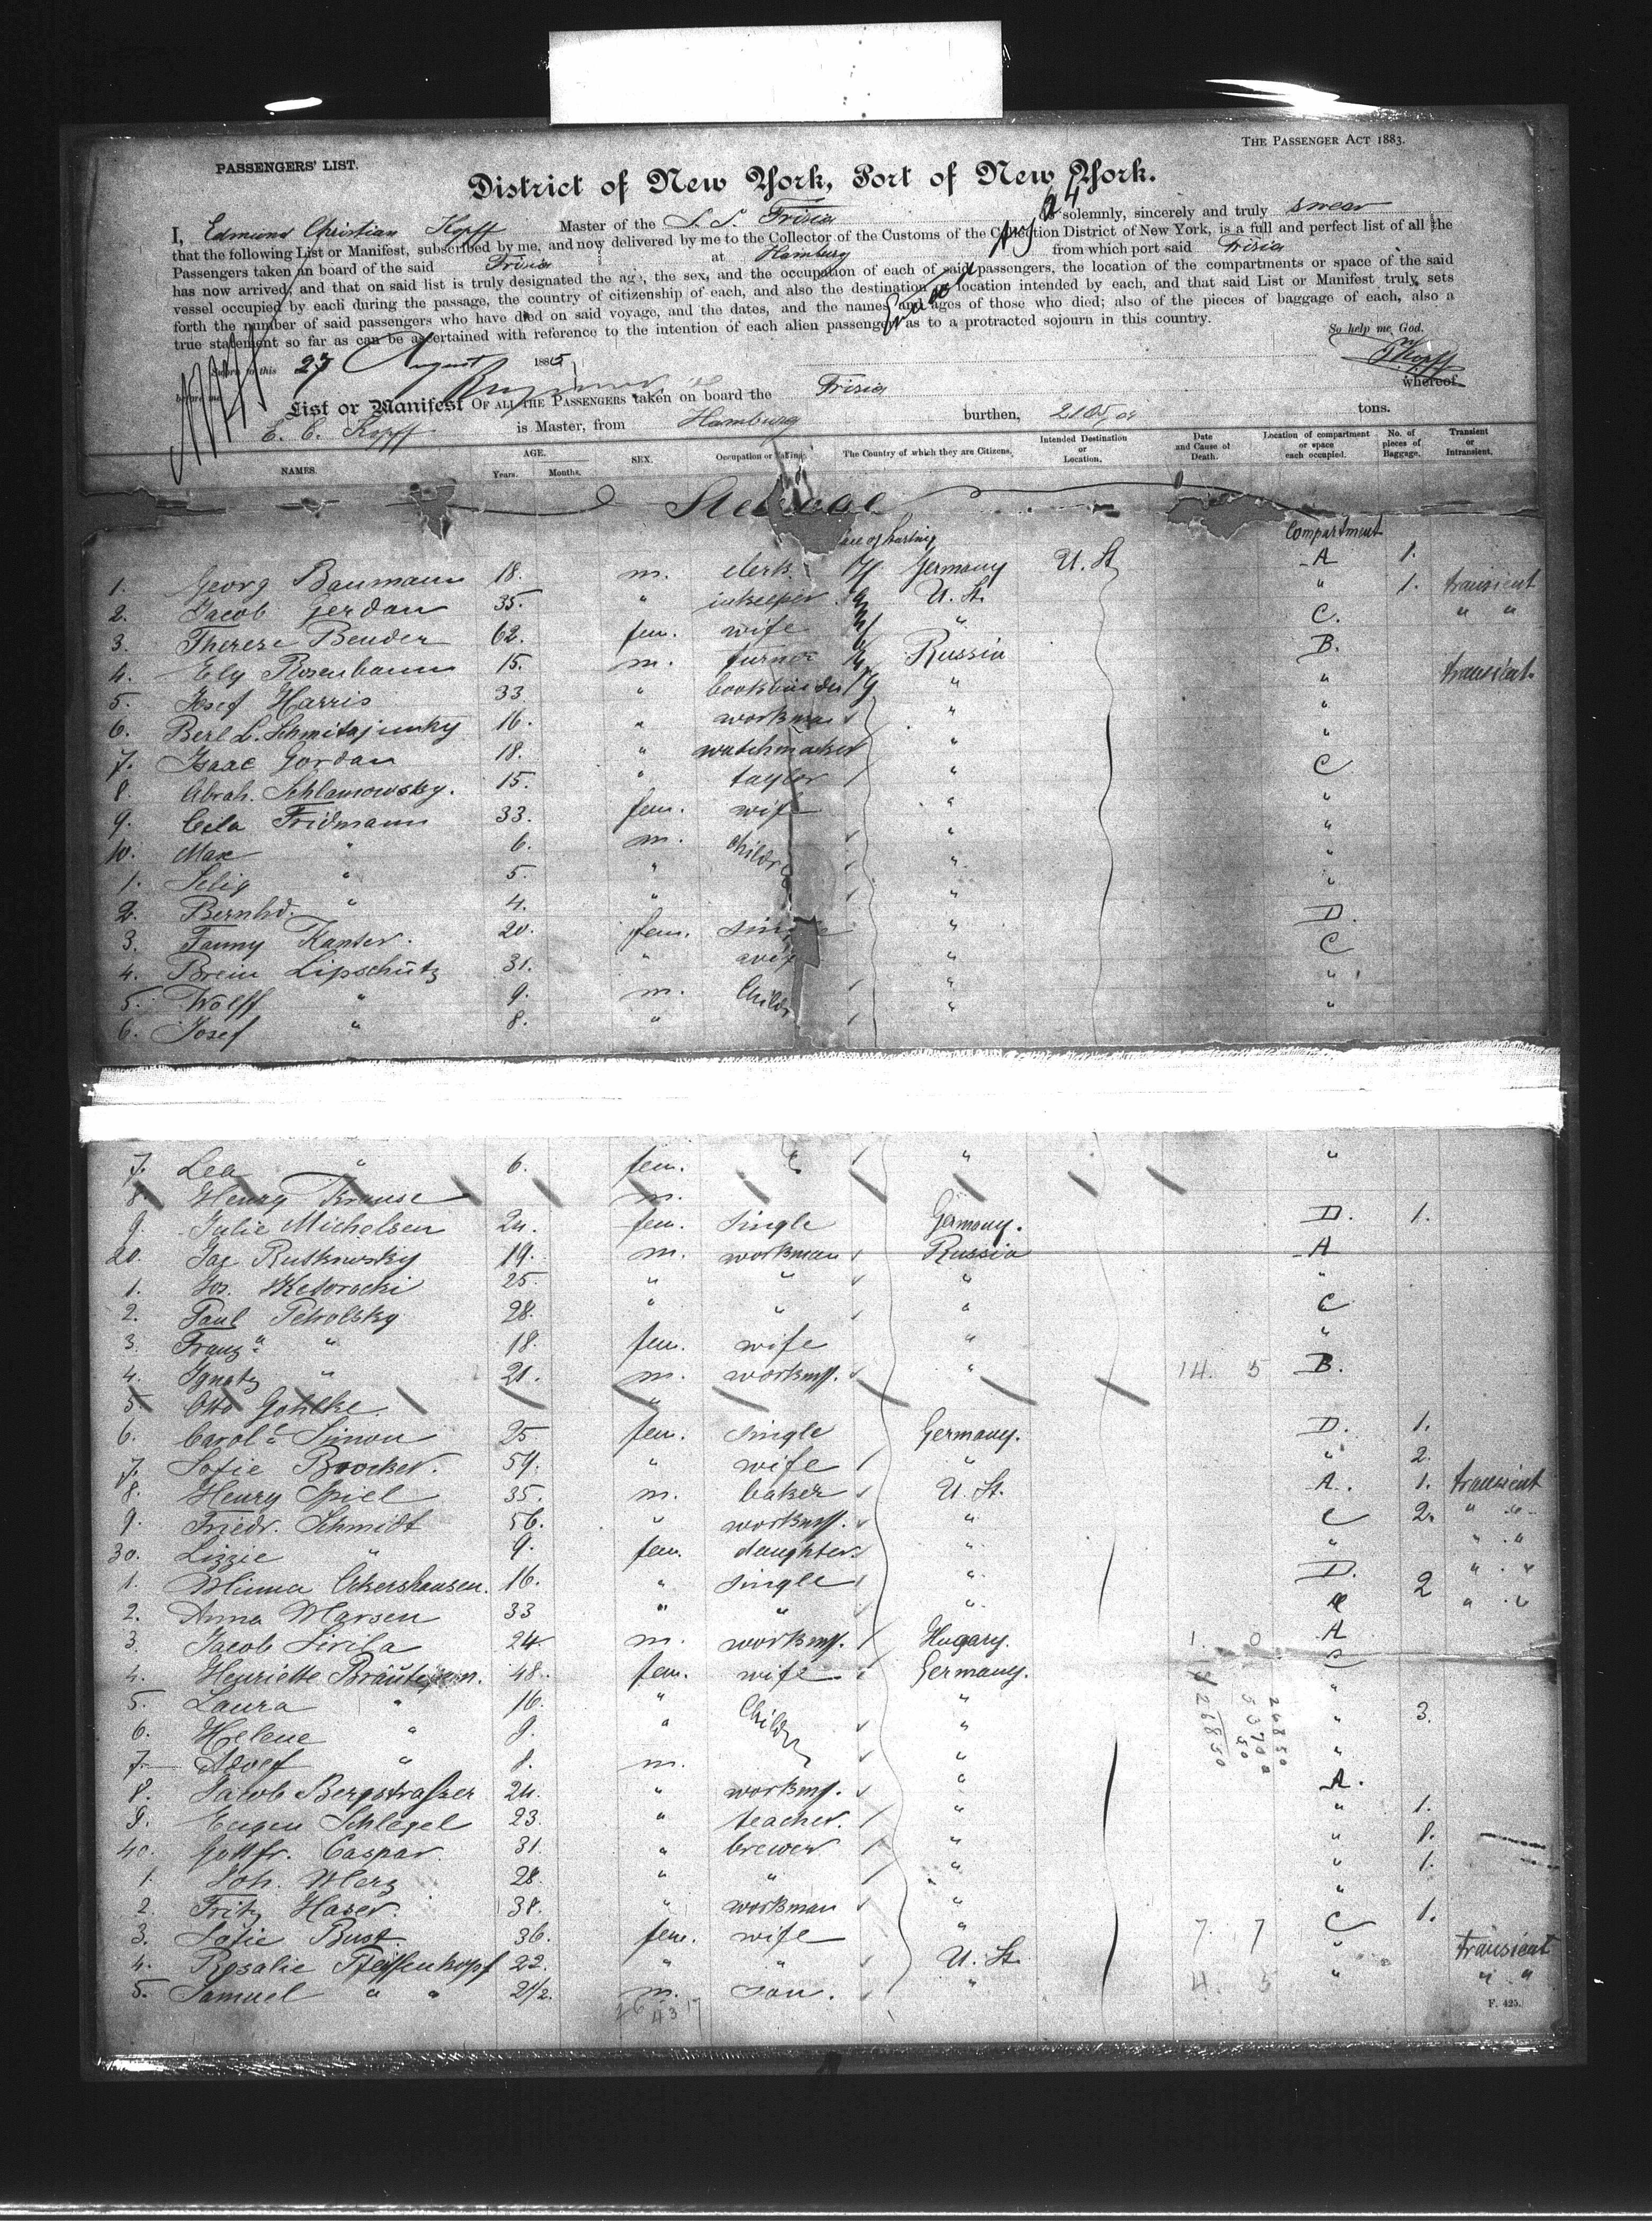 THE PASSENGER ACT 1883.
PASSENGERS' LIST.
District of New York, Port of New York.
I, Edmund Christian Kopff Master of the S. S. Frisia do solemnly, sincerely and truly swear
that the following List or Manifest, subscribed by me, and now delivered by me to the Collector of the Customs of the Collection District of New York, is a full and perfect list of all the
Passengers taken on board of the said Frisia at Hamburg from which port said Frisia
has now arrived; and that on said list is truly designated the age, the sex, and the occupation of each of said passengers, the location of the compartments or space of the said
vessel occupied by each during the passage, the country of citizenship of each, and also the destination or location intended by each, and that said List or Manifest truly sets
forth the number of said passengers who have died on said voyage, and the dates, and the names and ages of those who died; also of the pieces of baggage of each, also a
true statement so far as can be ascertained with reference to the intention of each alien passenger as to a protracted sojourn in this country.
So help me God.
Sworn to this 27 August 1885
E Kopff
before me
List or Manifest OF ALL THE PASSENGERS taken on board the Frisia whereof
E. C. Kopff is Master, from Hamburg burthen, tons.
NAMES. AGE. Years. Months. SEX. Occupation or Calling. The Country of which they are Citizens. Intended Destination or Location. Date and Cause of Death. Location of compartment or space each occupied. No. of pieces of Baggage. Transient or Intransient.
Steerage
Compartment
1. Georg Baumann 18. m. clerk Germany U. St. A 1.
2. Jacob Gerdau 35. " inkeeper U. St. " 1. transient
3. Therese Bender 62. fem. wife " C. " "
4. Ely Rosenbaum 15. m. turner Russia B.
5. Josef Harris 33 " bookbinder " " transient.
6. Berl L. 16. " workman " "
7. Isaac Gordan 18. " watchmaker " "
8. Abrah. Schlamowsky. 15. " taylor " C
9. Cela Fridmann 33. fem. wife " "
10. Max " 6. m. childr " "
1. Selig " 5. " " "
2. Bernhd. " 4. " " "
3. Fanny Kanter. 20. fem. single " D.
4. Brein Lipschütz 31. " wife " C
5. Wolff " 9. m. Childr " "
6. Josef " 8. " " "
7. Lea " 6. fem. " " "
8. Henry Krause m.
9. Julie Michelsen 24. fem. single Germany. D. 1.
20. Jac Rutkowsky 19. m. workman Russia A
1. Jos. 25. " " " "
2. Paul Petrolsky 28. " " " C
3. Franz " 18. fem. wife " "
4. Ignatz " 21. m. workmn. " 14. 5 B.
5. Otto Gohlke "
6. Carole Simon 25 fem. single Germany. D. 1.
7. Sofie Broecker. 59. " wife " " 2.
8. Henry Spiel 35. m. baker U. St. A. 1. transient
9. Friedr. Schmidt 56. " workmn. " C 2. " "
30. Lizzie " 9. fem. daughter " " " "
1. Minna Ackershausen. 16. " single " D. 2 " "
2. Anna Marsen 33 " " " " "
3. Jacob Sirila 24. m. workmn. Hugary. 1. 0 A
4. Henriette Bräutigam. 48. fem. wife Germany. C
5. Laura " 16. " Childr " "
6. Helene " 9. " " " 3.
7. Adolf " 8. m. " "
8. Jacob Bergstrasser 24. " workmn. " A.
9. Eugen Schlegel 23. " teacher. " " 1.
40. Gottfr. Caspar. 31. " brewer " " 1.
1. Joh. Merz 28. " " " " 1.
2. Fritz Haser. 38. " workman " "
3. Sofie Bust. 36. fem. wife " 7. 7 C 1.
4. Rosalie Pfeiffenkopf 22. " " U. St. " transient
5. Samuel " " 2 1/2. m. son. " 4. 5 " " "
F. 425.